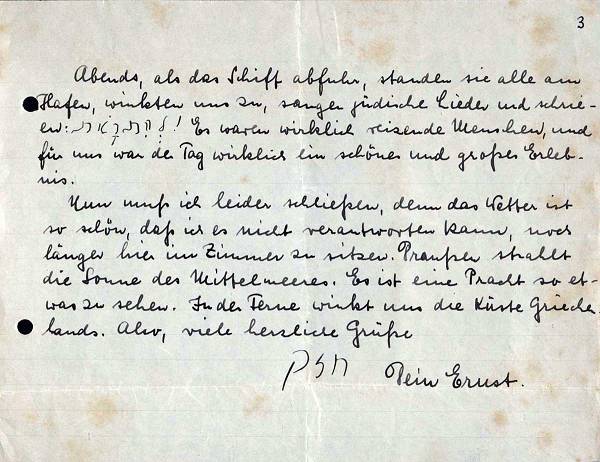 3
Abends, als das Schiff abfuhr, standen sie alle am
Hafen, winkten uns zu, sangen jüdische Lieder und schrie-
en: להתראות! Es waren wirklich reizende Menschen, und
für uns war der Tag wirklich ein schönes und großes Erleb-
nis.
Nun muß ich leider schließen, denn das Wetter ist
so schön, daß ich es nicht verantworten kann, noch
länger hier im Zimmer zu sitzen. Draußen strahlt
die Sonne des Mittelmeeres. Es ist eine Pracht so et-
was zu sehen. In der Ferne winkt uns die Küste Griechen-
lands. Also, viele herzliche Grüße
Dein Ernst.